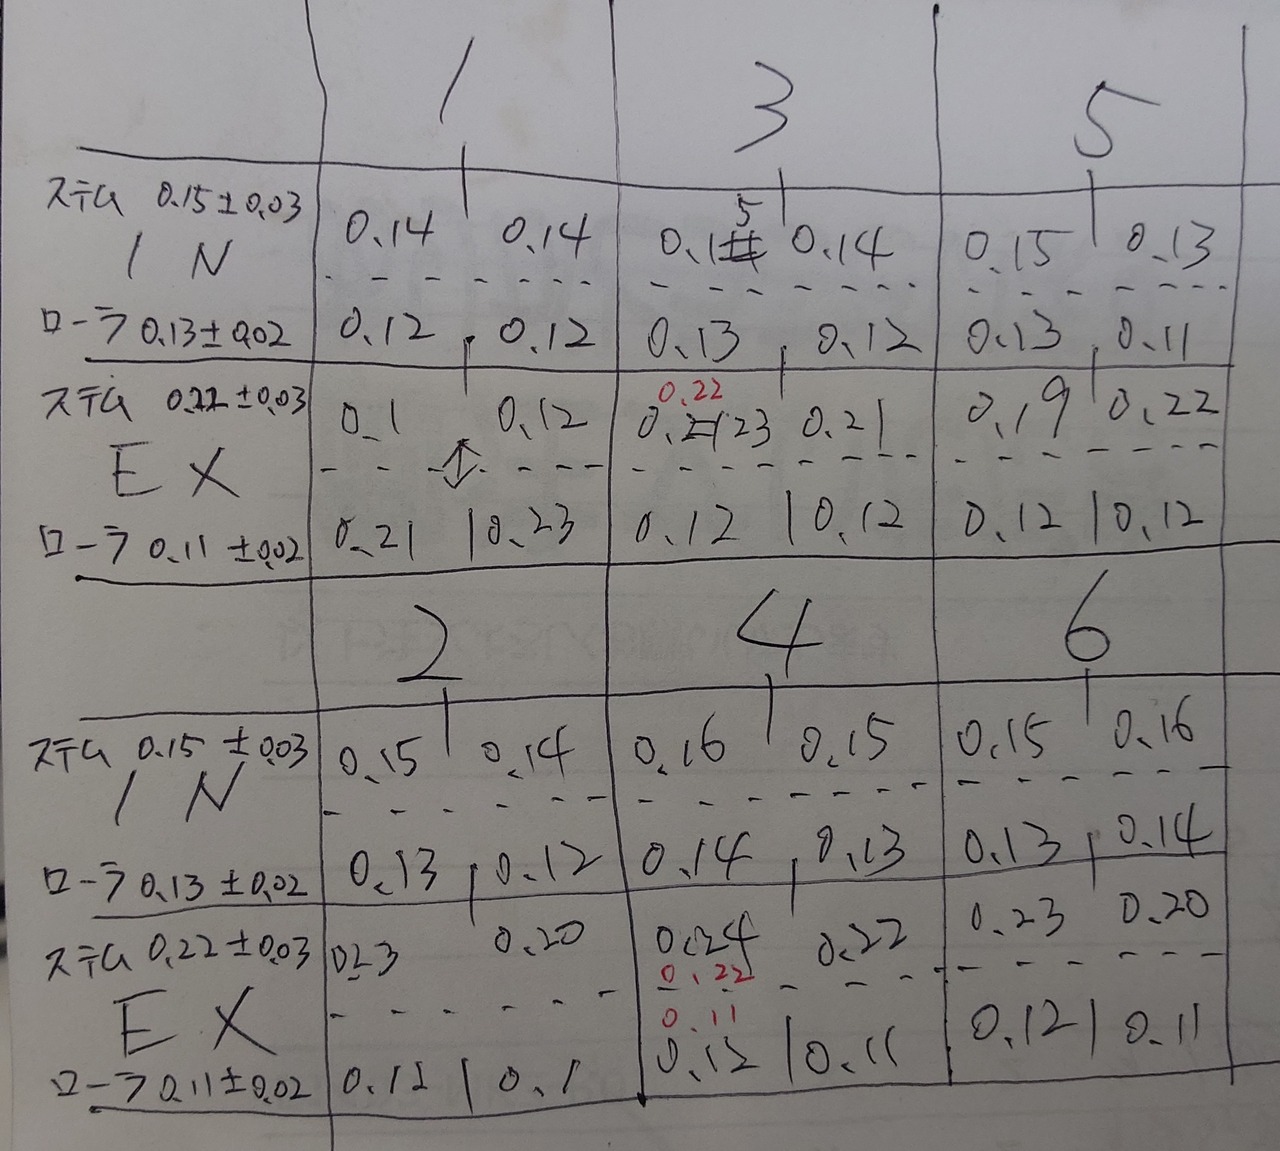 1 3 5
ステム 0.15±0.03 0.14 0.14 0.15 0.14 0.15 0.13
IN
ローラ 0.13±0.02 0.12 0.12 0.13 0.12 0.13 0.11
0.22
ステム 0.22±0.03 0.1 0.12 0.23 0.21 0.19 0.22
EX
ローラ 0.11±0.02 0.21 0.23 0.12 0.12 0.12 0.12
2 4 6
ステム 0.15±0.03 0.15 0.14 0.16 0.15 0.15 0.16
IN
ローラ 0.13±0.02 0.13 0.12 0.14 0.13 0.13 0.14
ステム 0.22±0.03 0.23 0.20 0.24 0.22 0.23 0.20
0.22
EX
0.11
ローラ 0.11±0.02 0.12 0.1 0.12 0.11 0.12 0.11